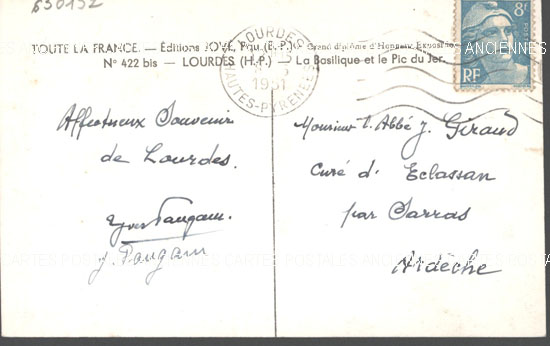 630152
TOUTE LA FRANCE. — Éditions JOVE, Pau. (B.P.) Grand diplôme d'Honneur Exposition
N° 422 bis — LOURDES (H.-P.) — La Basilique et le Pic du Jer.
LOURDES
1951
HAUTES-PYRENEES
8F
POSTES
RF
Affectueux Souvenir
de Lourdes.
Yves Paugam.
J. Paugam
Monsieur l'Abbé J. Giraud
Curé d'Eclassan
par Sarras
Ardèche
CARTES POSTALES ANCIENNES